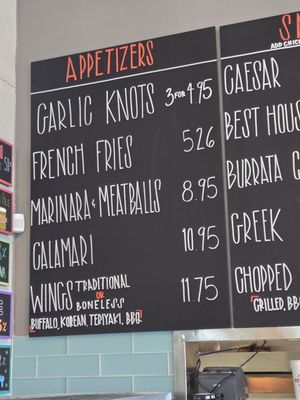 APPETIZERS
GARLIC KNOTS 3 FOR 4.95
FRENCH FRIES 5.26
MARINARA & MEATBALLS 8.95
CALAMARI 10.95
WINGS TRADITIONAL OR BONELESS 11.75
BUFFALO, KOREAN, TERIYAKI, BBQ!
SA
ADD CHIC
CAESAR
BEST HOUS
BURRATA C
GREEK
CHOPPED
GRILLED, BB